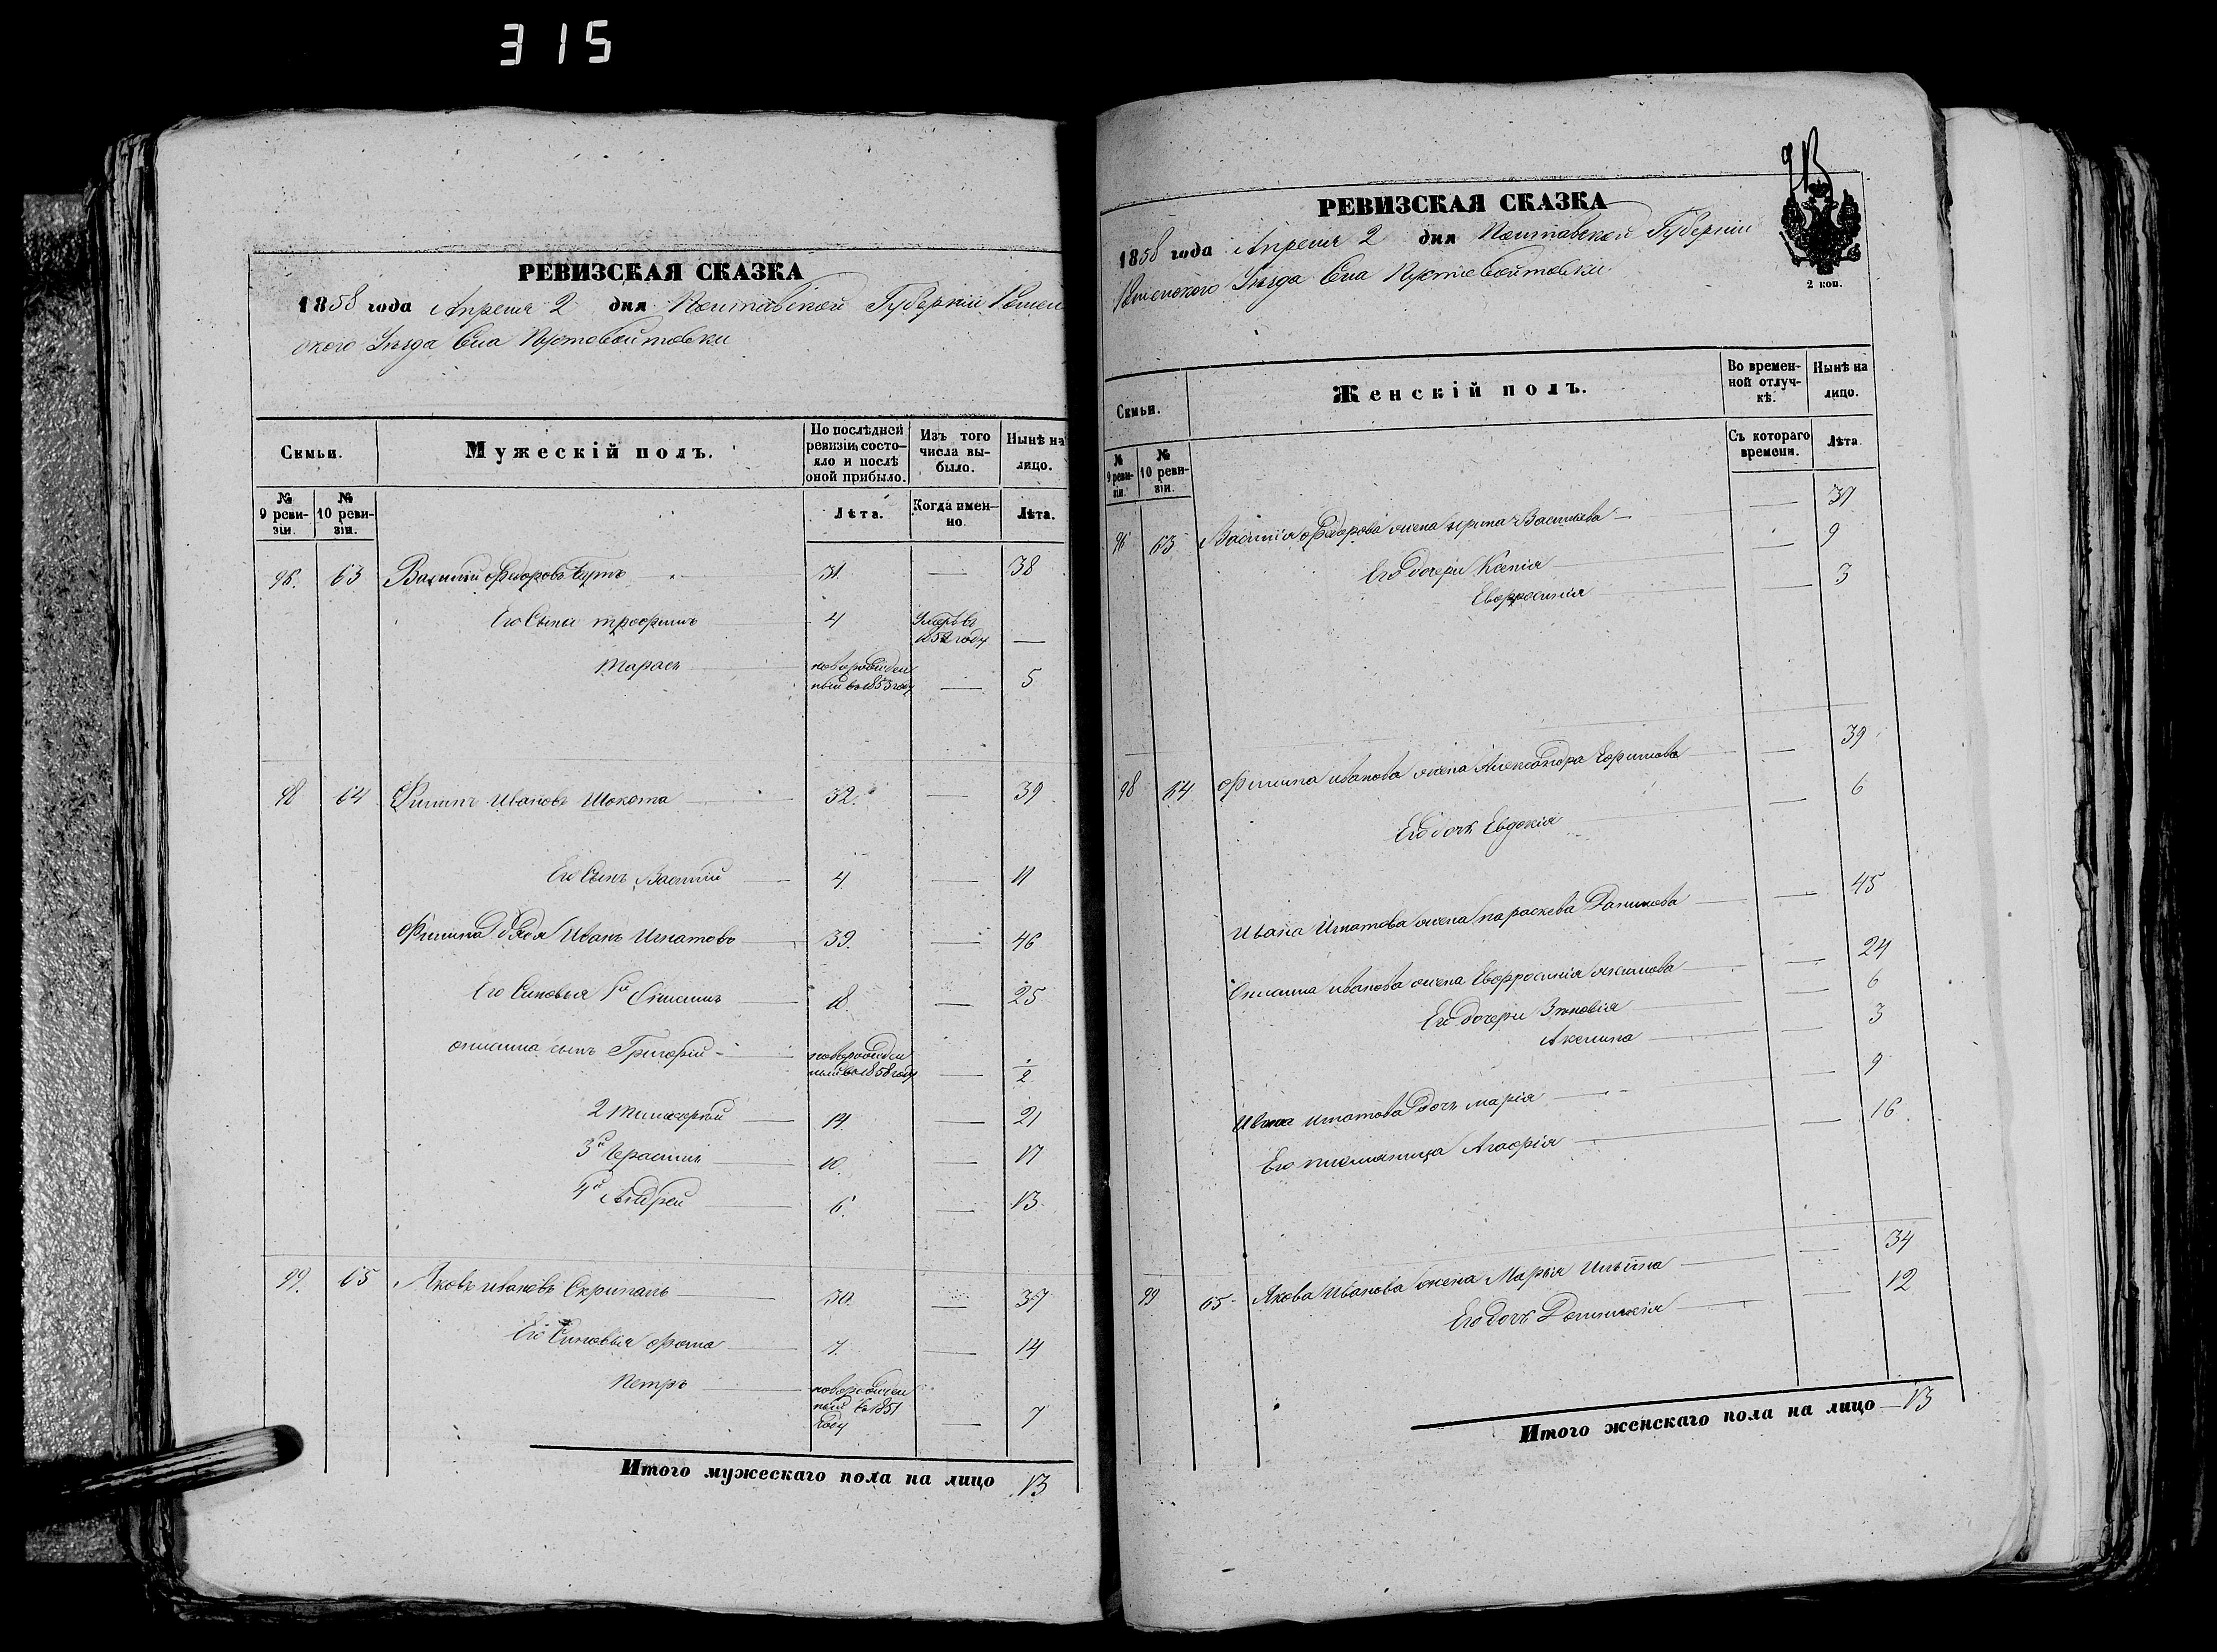 315
РЕВИЗСКАЯ СКАЗКА
1858 года Апреля 2 дня Полтавской Губерніи Ромен
ского Уѣзда Села Пустовойтовки
Семьи.
Мужескій полъ.
По послѣдней ревизіи состояло и послѣ оной прибыло.
Изъ того числа выбыло.
Нынѣ на лицо.
№ 9 ревизіи.
№ 10 ревизіи.
Лѣта.
Когда именно.
Лѣта.
96. 63 Василій Федоровъ 31. — 38
Его Сыны Трофимъ 4 Умеръ въ 1852 году —
Тарасъ новорожденный въ 1853 году — 5
98 64 Филипъ Ивановъ Шокота 32. — 39
Его Сынъ Василій 4. — 11
Филипа дядя Иванъ Игнатовъ 39. — 46
Его Сыновья 1й Онисимъ 18. — 25
Онисима сынъ Григорій новорожденный въ 1858 году — 1/2
2 Тимофей 14. — 21
3й Герасимъ 10. — 17
4й Андрей 6. — 13
99. 65 Яковъ Ивановъ Скрипаль 30. — 37
Его Сыновья Фома 7. — 14
Петръ новорожденный въ 1851 году — 7
Итого мужескаго пола на лицо 13
913
РЕВИЗСКАЯ СКАЗКА
1858 года Апреля 2 дня Полтавской Губерніи
Роменского Уѣзда Села Пустовойтовки
2 коп.
Семьи.
Женскій полъ.
Во временной отлучкѣ.
Нынѣ на лицо.
№ 9 ревизіи.
№ 10 ревизіи.
Съ котораго времени.
Лѣта.
96 63 Василія Федорова жена Ирина Васильева — 37
Его дочери Ксенія — 9
Евфросинія — 3
98 64 Филипа Иванова жена Александра Ефимова — 39
Его дочь Евдокія — 6
Ивана Игнатова жена Параскева Данилова — 45
Онисима Иванова жена Евфросинія Якимова — 24
Его дочери Зиновія — 6
Акилина — 3
Ивана Игнатова дочь Марія — 9
Его племянница Агафія — 16
99 65 Якова Иванова жена Марья Ильина — 34
Его дочь Домникія — 12
Итого женскаго пола на лицо 13